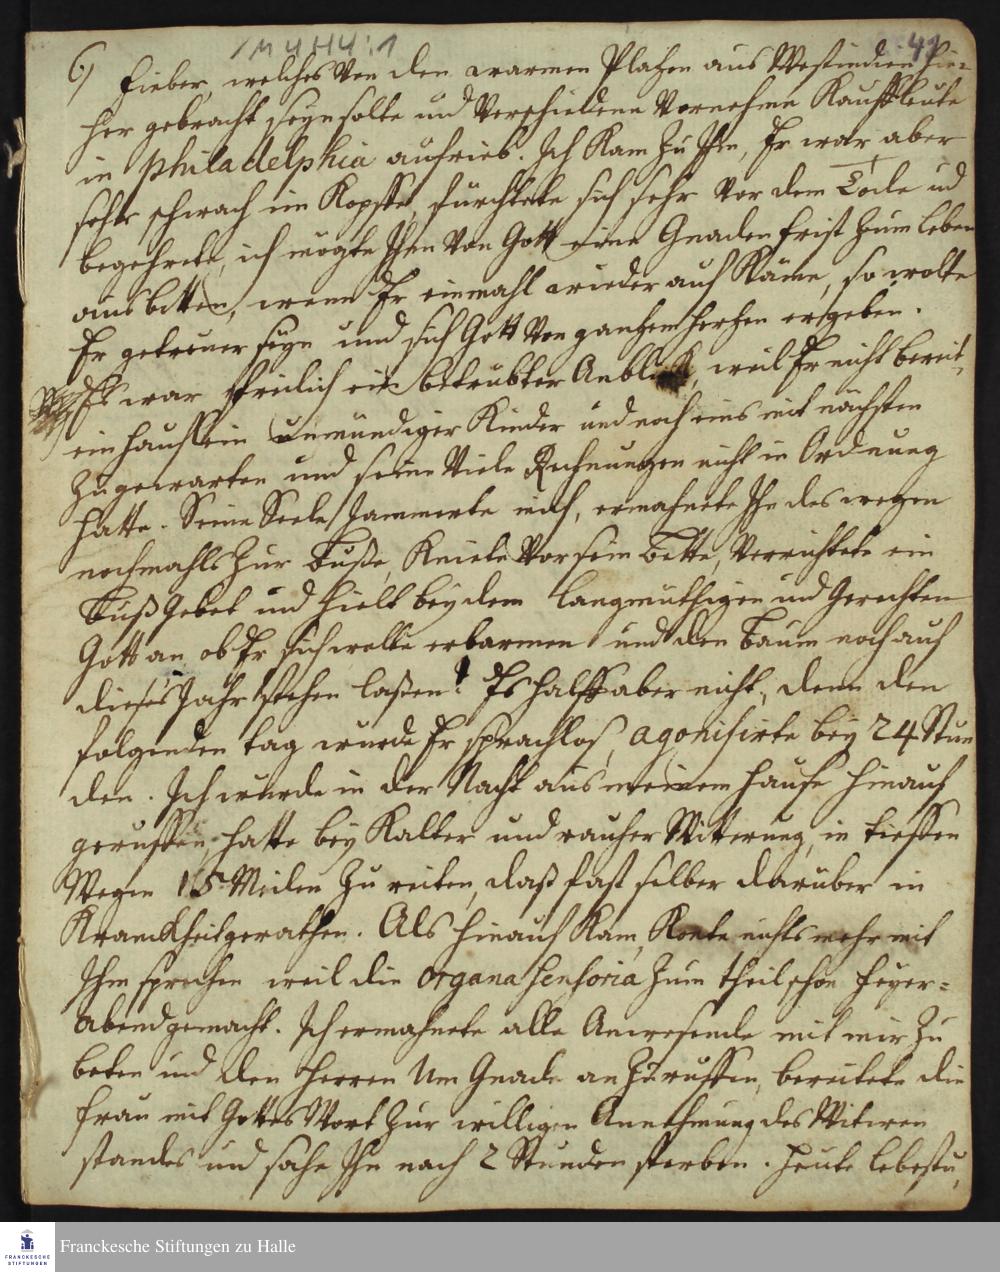 1 M 4 H 4 : 1
41
6.) Fieber, welches von den warmen Plätzen aus Westindien hie-
her gebracht seyn solte und verschiedene vornehme Kauffleute
in philadelphia aufrieb. Ich kam zu Ihm, Er war aber
sehr schwach im Kopffe, fürchtete sich sehr vor dem Tode ud
begehrete, ich mögte Ihm von Gott eine Gnaden frist zum leben
ausbitten, wenn Er einmahl wieder auf käme, so wolte
Er getreuer seyn und sich Gott von gantzem Hertzen ergeben.
Es war freilich ein betrübter Anblick, weil Er nicht bereit,
ein hauflein unmündiger Kinder und noch eins mit nächsten
zugewarten und seine viele Rechnungen nicht in Ordnung
hatte. Seine Seele Jammerte mich, ermahnete Ihn deswegen
nochmahls zur Buße, kniete vor sein Bette, verrichtete ein
Buß Gebet und hielt bey dem langmüthigen und Gerechten
Gott an, ob Er sich wolle erbarmen und den Baum noch auf
dieses Jahr stehen laßen? Es halff aber nicht, denn den
folgenden tag wurde Er sprachlos, agonisirte bey 24 Stun
den. Ich wurde in der Nacht aus meinem Hause hinauf
geruffen, hatte bey kalter und rauher Witterung, in tieffen
Wegen 15 Meilen zu reiten, daß fast selber darüber in
Kranckheit gerathen. Als hinauf kam, konte nichts mehr mit
Ihm sprechen weil die organa sensoria zum theil schon feyer-
abend gemacht. Ich ermahnete alle Anwesende mit mir zu
beten und den Herren um Gnade an zu ruffen, bereitete die
frau mit Gottes Wort zur willigen Annehmung des Witwen
standes und sahe Ihn nach 2 Stunden sterben. Heute lebestu,
FRANCKESCHE
STIFTUNGEN
Franckesche Stiftungen zu Halle